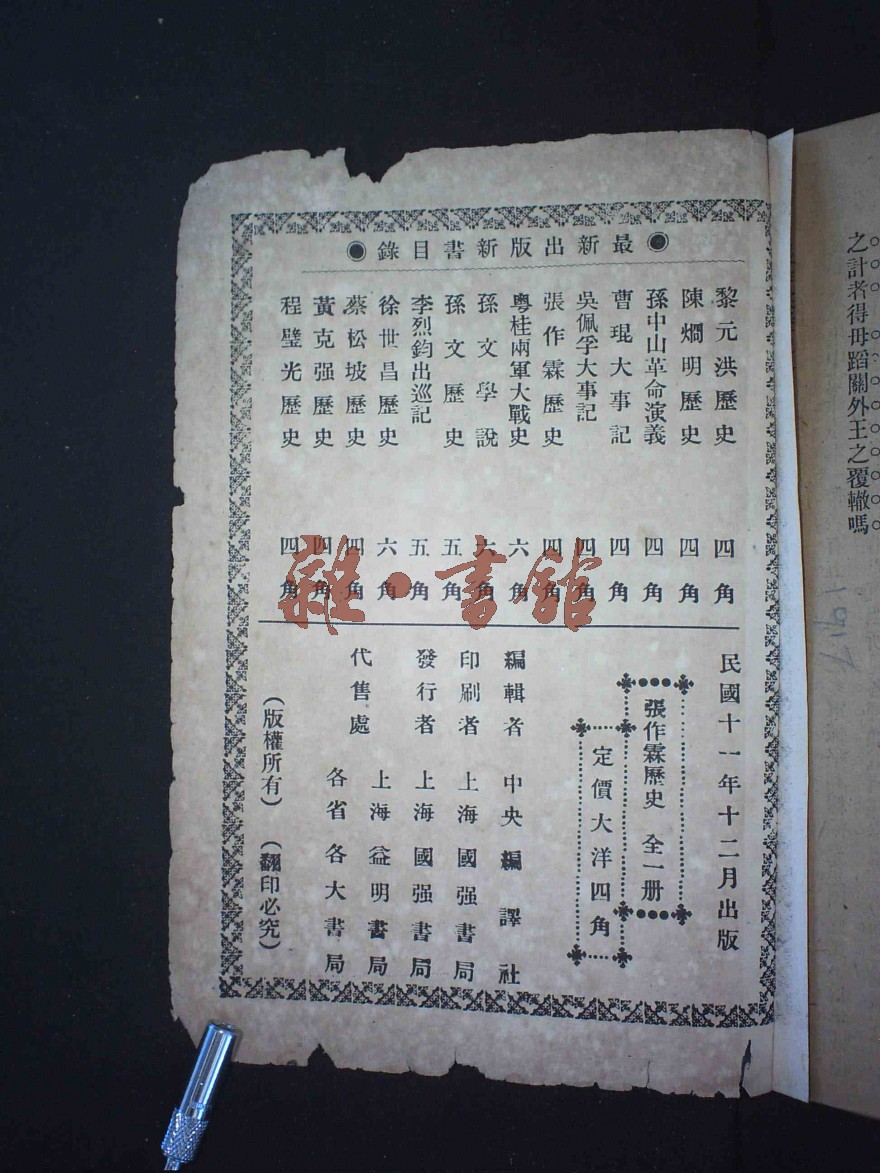 之計者得毋蹈關外王之覆轍嗎
◉最新出版新書目錄◉
黎元洪歷史 四角
陳烱明歷史 四角
孫中山革命演義 四角
曹琨大事記 四角
吳佩孚大事記 四角
張作霖歷史 四角
粵桂兩軍大戰史 六角
孫文學說 六角
孫文歷史 五角
李烈鈞出巡記 五角
徐世昌歷史 六角
蔡松坡歷史 四角
黃克强歷史 四角
程璧光歷史 四角
民國十一年十二月出版
張作霖歷史 全一册
定價大洋四角
編輯者 中央編譯社
印刷者 上海國强書局
發行者 上海國强書局
代售處 上海益明書局
各省各大書局
（版權所有）（翻印必究）
雜·書館